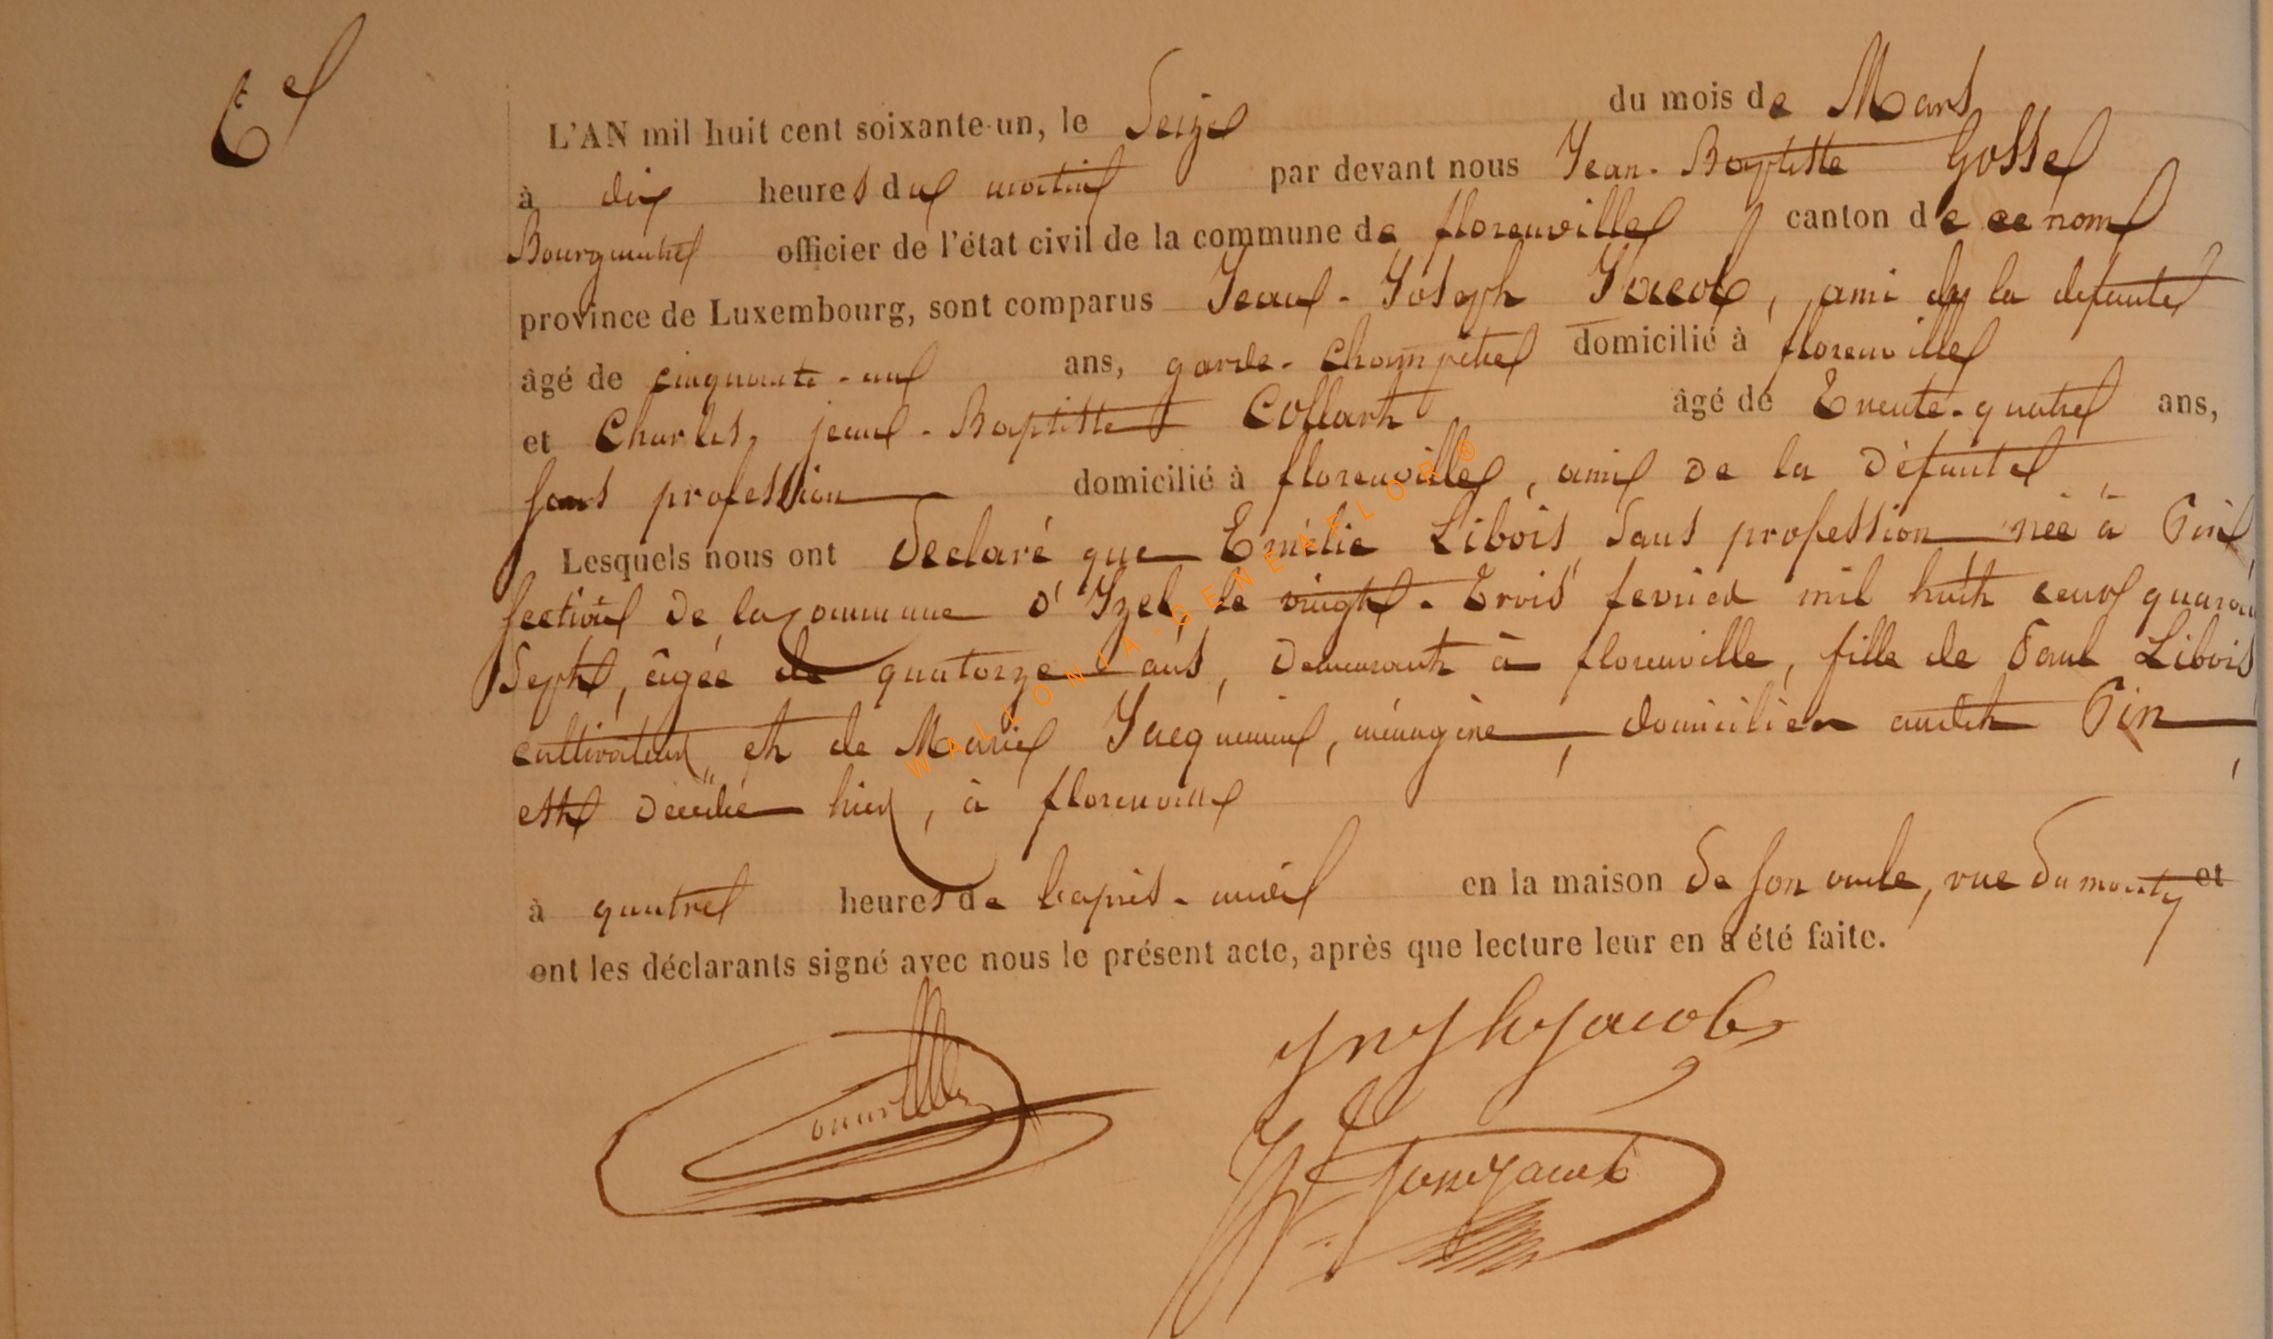 L'AN mil huit cent soixante-un, le Seize du mois de Mars
à dix heures du matin par devant nous Jean-Baptiste Gosse
Bourgmestre officier de l'état civil de la commune de florenville, canton de ce nom
province de Luxembourg, sont comparus Jean-Joseph Jacob, ami de la défunte
âgé de cinquante-un ans, garde-Champêtre domicilié à florenville
et Charles, jean-Baptiste Collart âgé de Trente-quatre ans,
sans profession domicilié à florenville, ami de la défunte
Lesquels nous ont déclaré que Emélie Libois, sans profession née à Pin
section de la commune d'Izel, le vingt-Trois fevrier mil huit cent quarante
Sept, âgée de quatorze ans, demeurant à florenville, fille de Paul Libois
cultivateur, et de Marie Jacquemin, ménagère, domiciliés audit Pin,
est décédée hier, à florenville
à quatre heures de l'après-midi en la maison de son oncle, rue du et
ont les déclarants signé avec nous le présent acte, après que lecture leur en a été faite.
Jacob
WALLONIA-GENEAFLOR®